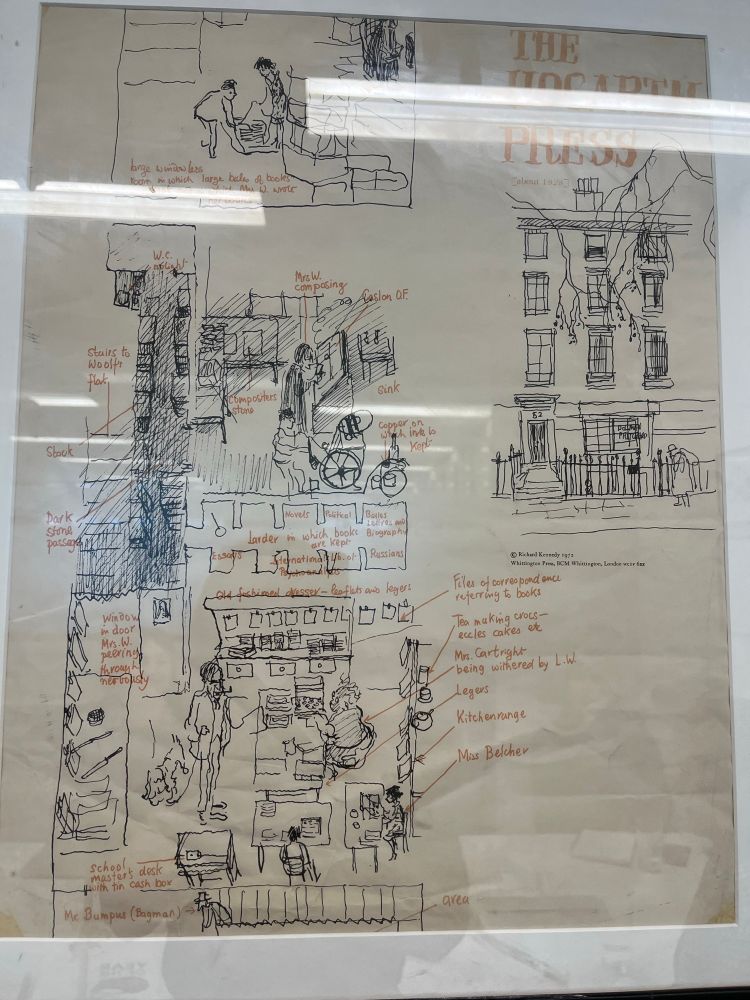 THE
HOGARTH
PRESS
[about 1928]
large windowless
room in which large bales of books
Mrs W. wrote
W.C.
no light
Mrs W.
composing
Caslon O.F.
Stairs to
Woolf's
flat
Compositers
stone
Sink
copper on
which ink is
kept
Stock
52
Dark
stone
passage
Novels
Political
Belles
Lettres and
Biography
Larder in which books
are kept
Essays
International Lib. of
Psychoanalysis
Russians
© Richard Kennedy 1972
Whittington Press, BCM Whittington, London WC1V 6XX
Old fashioned dresser – leaflets and legers
Files of correspondence
referring to books
Window
in door
Mrs. W.
peering
through
nervously
Tea making crocs –
eccles cakes etc
Mrs. Cartright
being withered by L.W.
Legers
Kitchenrange
Miss Belcher
school
master's desk
with tin cash box
Mr Bumpus (Bagman)
area